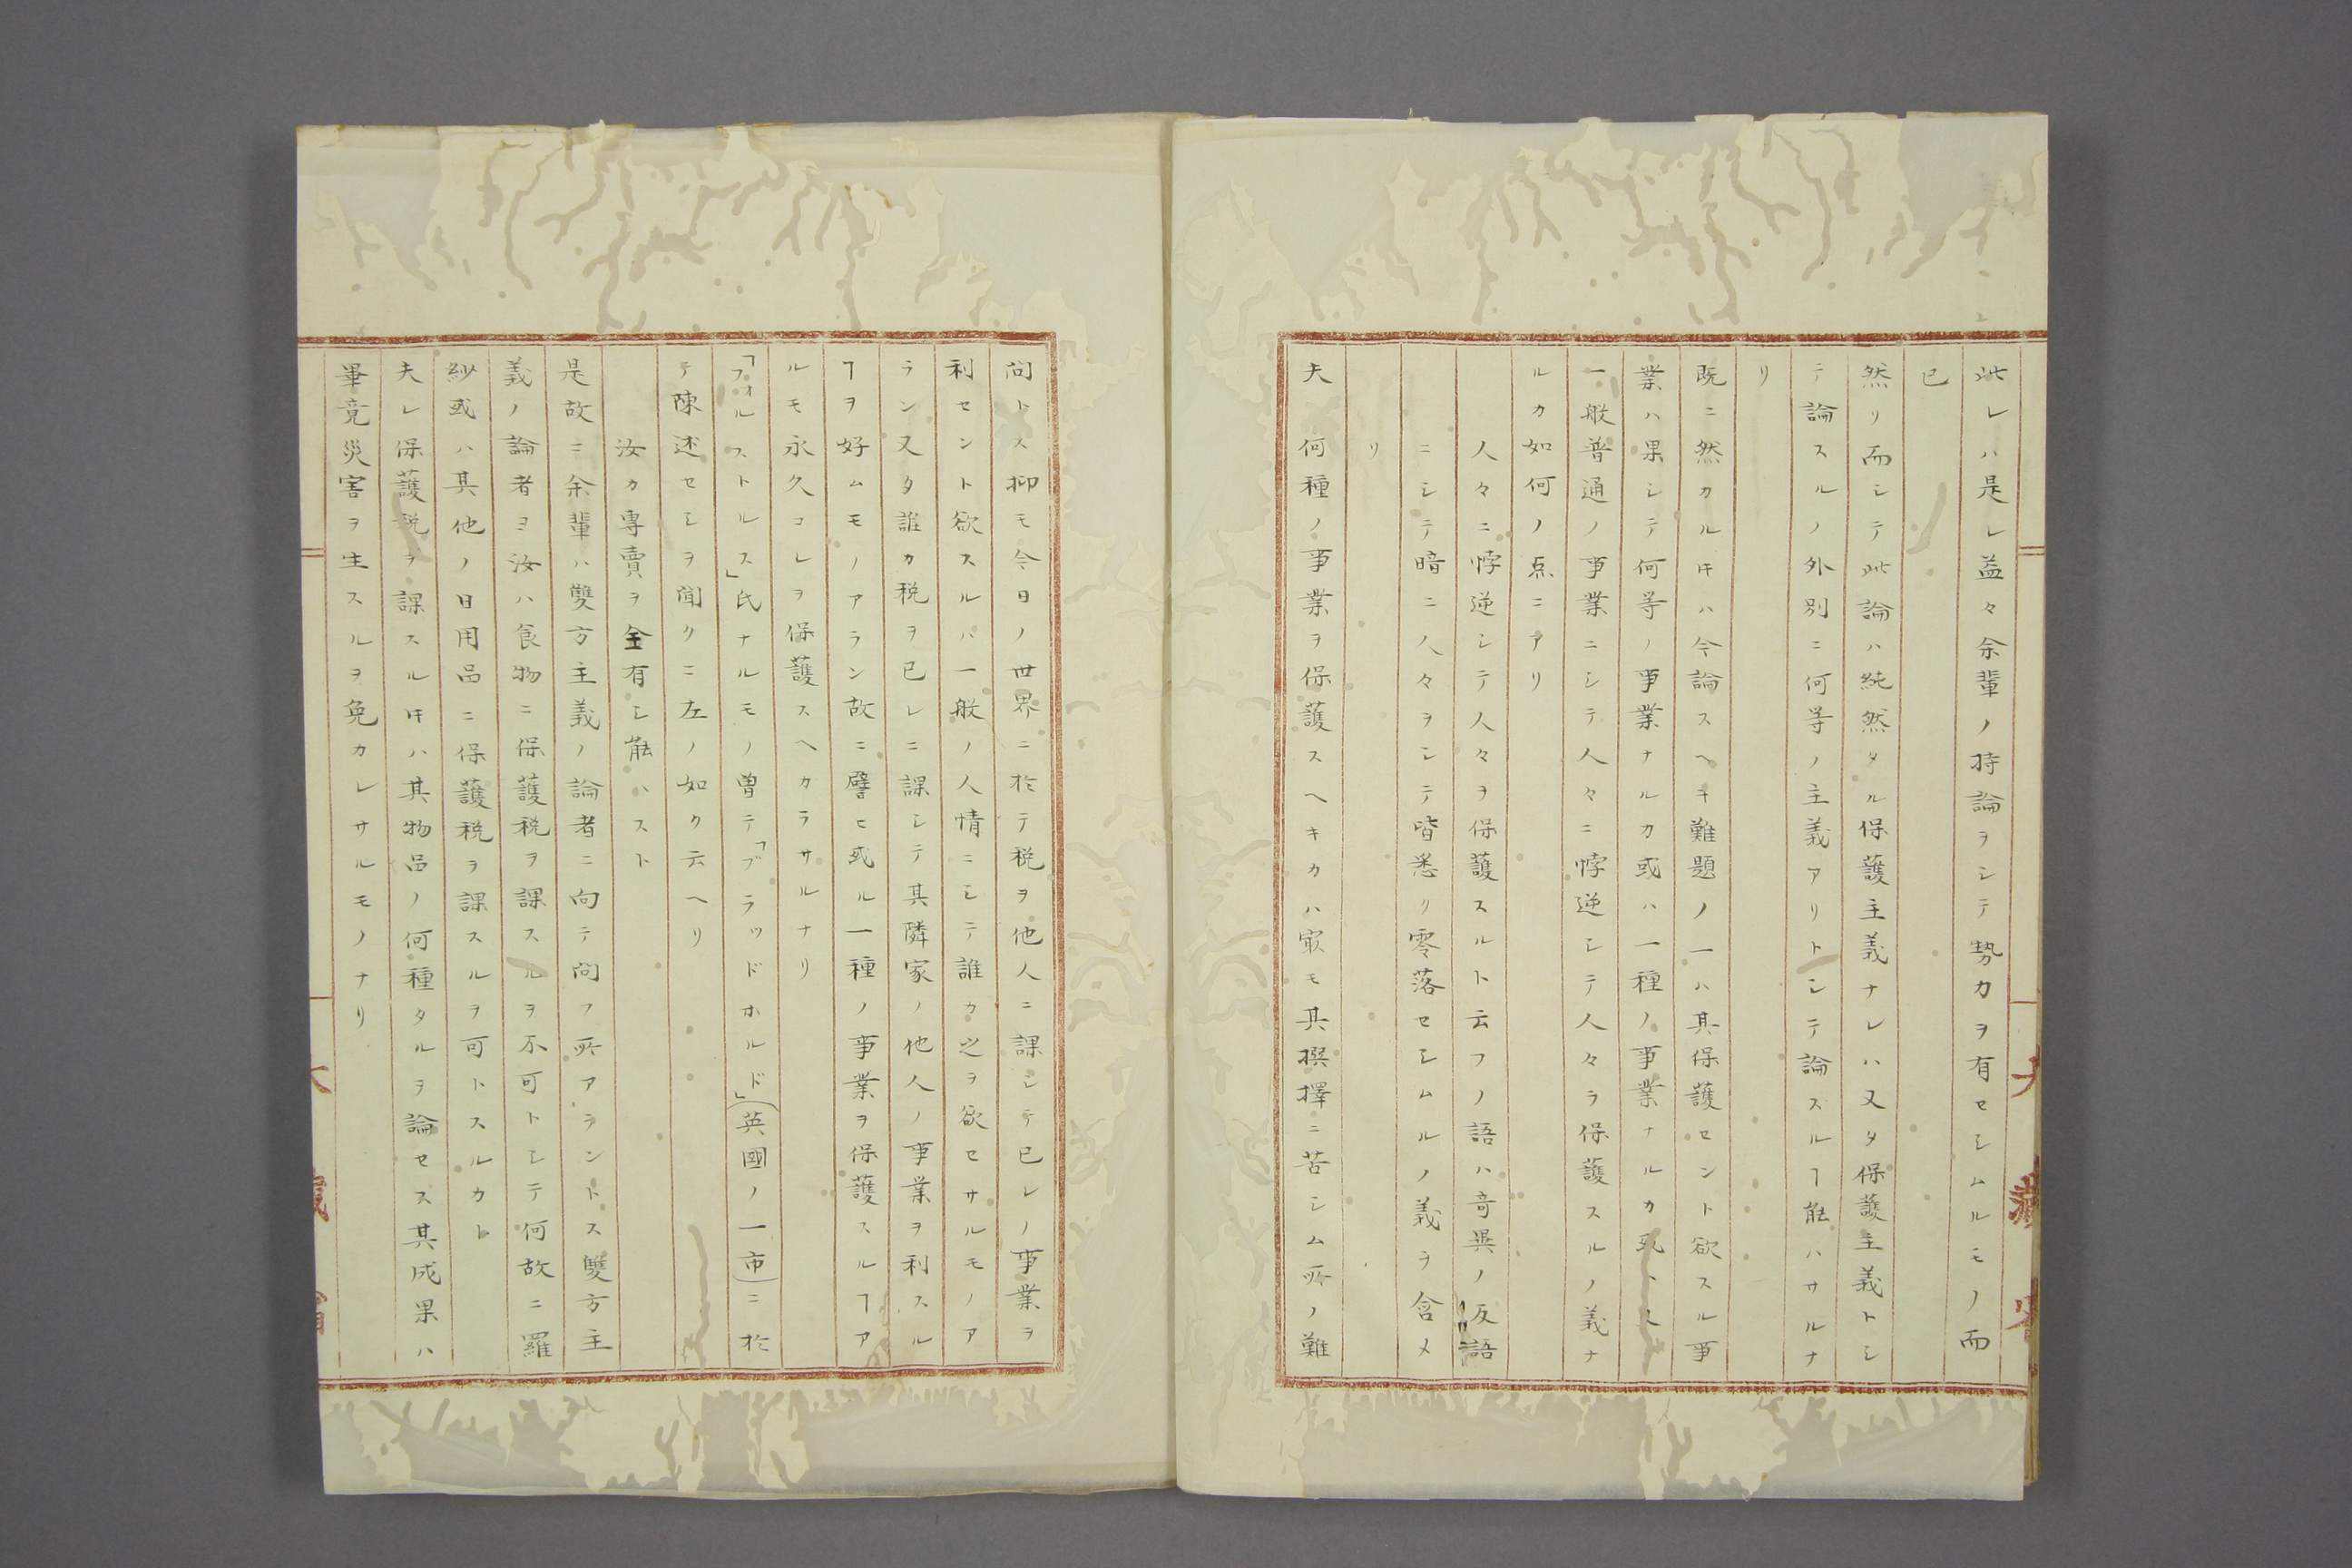 此レハ是レ益々余輩ノ持論ヲシテ勢力ヲ有セシムルモノ而
已
然リ而シテ此論ハ純然タル保護主義ナレハ又タ保護主義トシ
テ論スルノ外別ニ何等ノ主義アリトシテ論スルヿ能ハサルナ
リ
既ニ然カルㇳキハ今論スヘキ難題ノ一ハ其保護セント欲スル事
業ハ果シテ何等ノ事業ナルカ或ハ一種ノ事業ナルカ
一般普通ノ事業ニシテ人々ニ悖逆シテ人々ヲ保護スルノ義ナ
ルカ如何ノ点ニアリ
人々ニ悖逆シテ人々ヲ保護スルト云フノ語ハ奇異ノ反語
ニシテ暗ニ人々ヲシテ皆悉ク零落セシムルノ義ヲ含メ
リ
夫何種ノ事業ヲ保護スヘキカハ㝡モ其撰擇ニ苦シム所ノ難
問トス抑モ今日ノ世界ニ於テ税ヲ他人ニ課シテ已レノ事業ヲ
利セント欲スルハ一般ノ人情ニシテ誰カ之ヲ欲セサルモノア
ラン又タ誰カ税ヲ已レニ課シテ其隣家ノ他人ノ事業ヲ利スル
ヿヲ好ムモノアラン故ニ譬ヒ或ル一種ノ事業ヲ保護スルヿア
ルモ永久コレヲ保護スヘカラサルナリ
「フォルストルス」氏ナルモノ曽テ「ブラッドホルド」(英國ノ一市)ニ於
テ陳述セシヲ聞クニ左ノ如ク云ヘリ
汝カ專賣ヲ全有シ能ハスト
是故ニ余輩ハ雙方主義ノ論者ニ向テ問フ所アラントス雙方主
義ノ論者ヨ汝ハ食物ニ保護税ヲ課スルヲ不可トシテ何故ニ羅
紗或ハ其他ノ日用品ニ保護税ヲ課スルヲ可トスルカト
夫レ保護税ヲ課スルㇳキハ其物品ノ何種タルヲ論セス其成果ハ
畢竟災害ヲ生スルヲ免カレサルモノナリ
大藏省